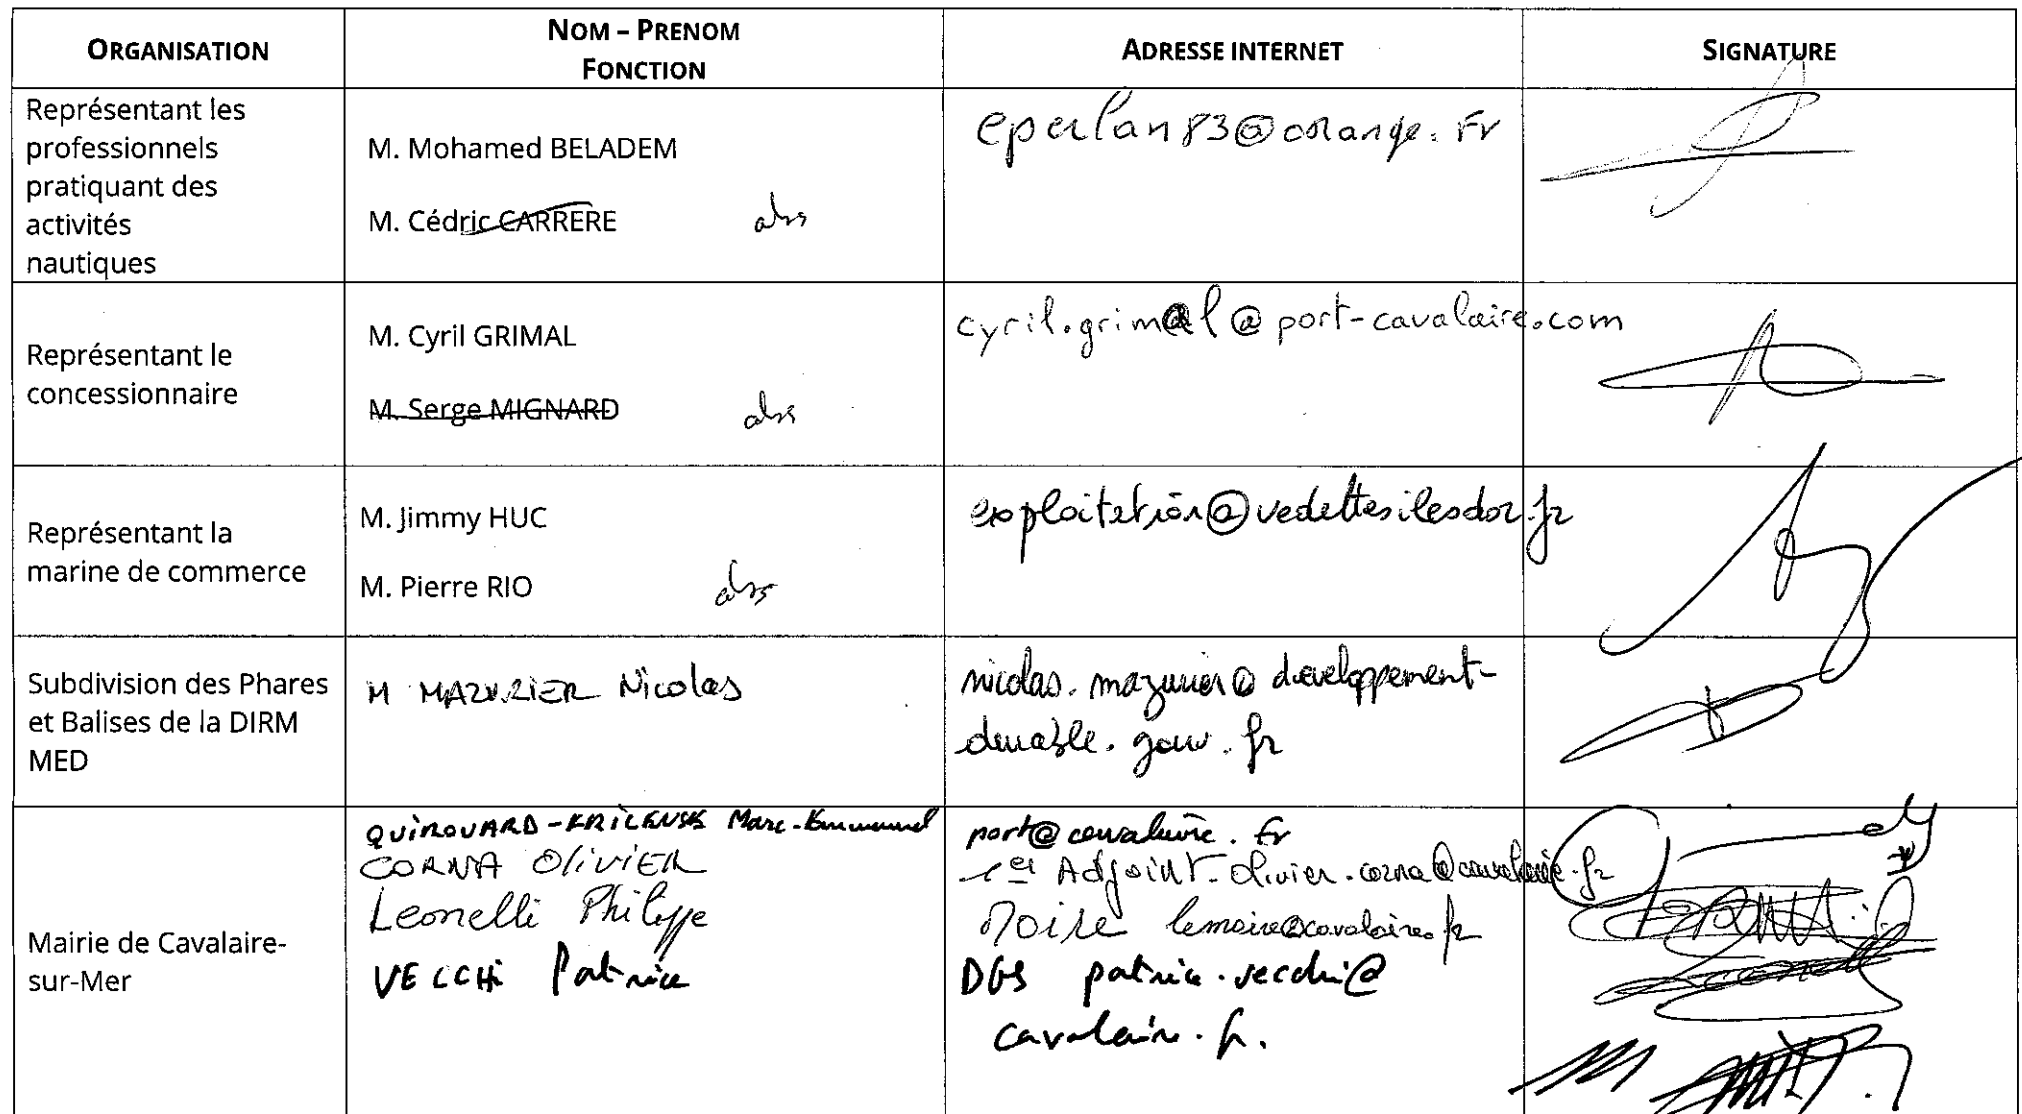 ORGANISATION
NOM – PRENOM
FONCTION
ADRESSE INTERNET
SIGNATURE
Représentant les
professionnels
pratiquant des
activités
nautiques
M. Mohamed BELADEM
M. Cédric CARRERE abs
eperlan83@orange.fr
Représentant le
concessionnaire
M. Cyril GRIMAL
M. Serge MIGNARD abs
cyril.grimal@port-cavalaire.com
Représentant la
marine de commerce
M. Jimmy HUC
M. Pierre RIO abs
exploitation@vedettesilesdor.fr
Subdivision des Phares
et Balises de la DIRM
MED
M MAZURIER Nicolas
nicolas.mazurier@developpement-
durable.gouv.fr
Mairie de Cavalaire-
sur-Mer
Marc-Emmanuel
CORNA OLIVIER
Leonelli Philippe
VECCHI Patrice
port@cavalaire.fr
1er Adjoint - olivier.corna@cavalaire.fr
Maire lemaire@cavalaire.fr
DGS patrice.vecchi@
cavalaire.fr.